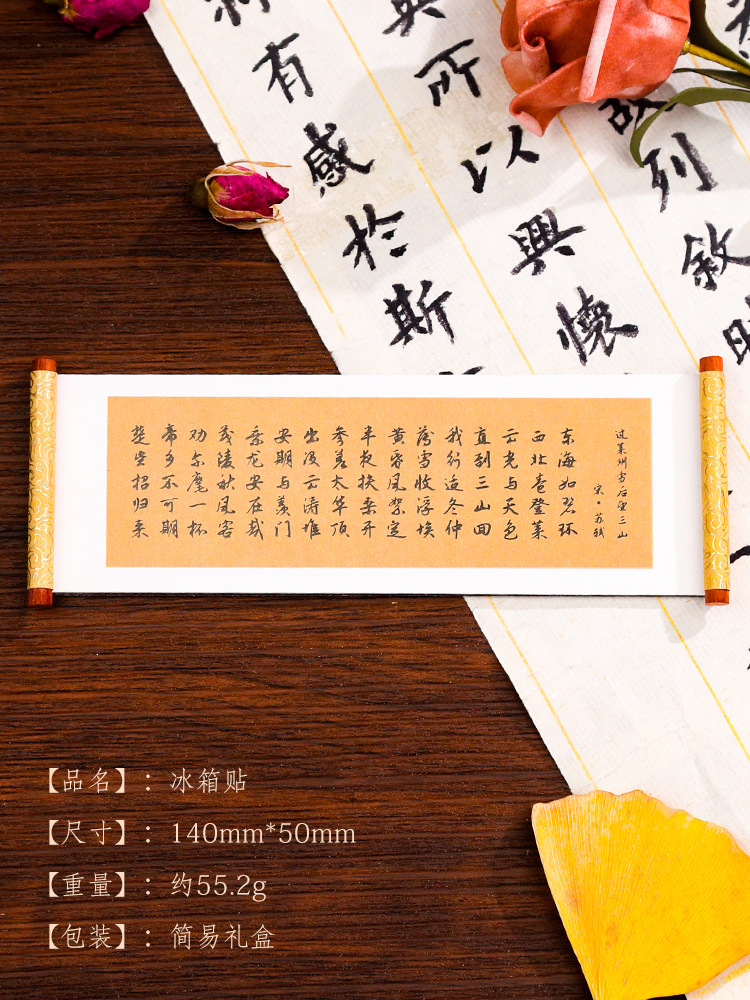 列敘
所以興懷
有感於斯
过莱州雪后望三山
宋·苏轼
东海如碧环
西北卷登莱
云光与天色
直到三山回
我行适冬仲
薄雪收浮埃
黄昏风絮定
半夜扶桑开
参差太华顶
出没云涛堆
安期与羡门
乘龙安在哉
茂陵秋风客
劝尔麾一杯
帝乡不可期
楚些招归来
【品名】：冰箱贴
【尺寸】：140mm*50mm
【重量】：约55.2g
【包装】：简易礼盒